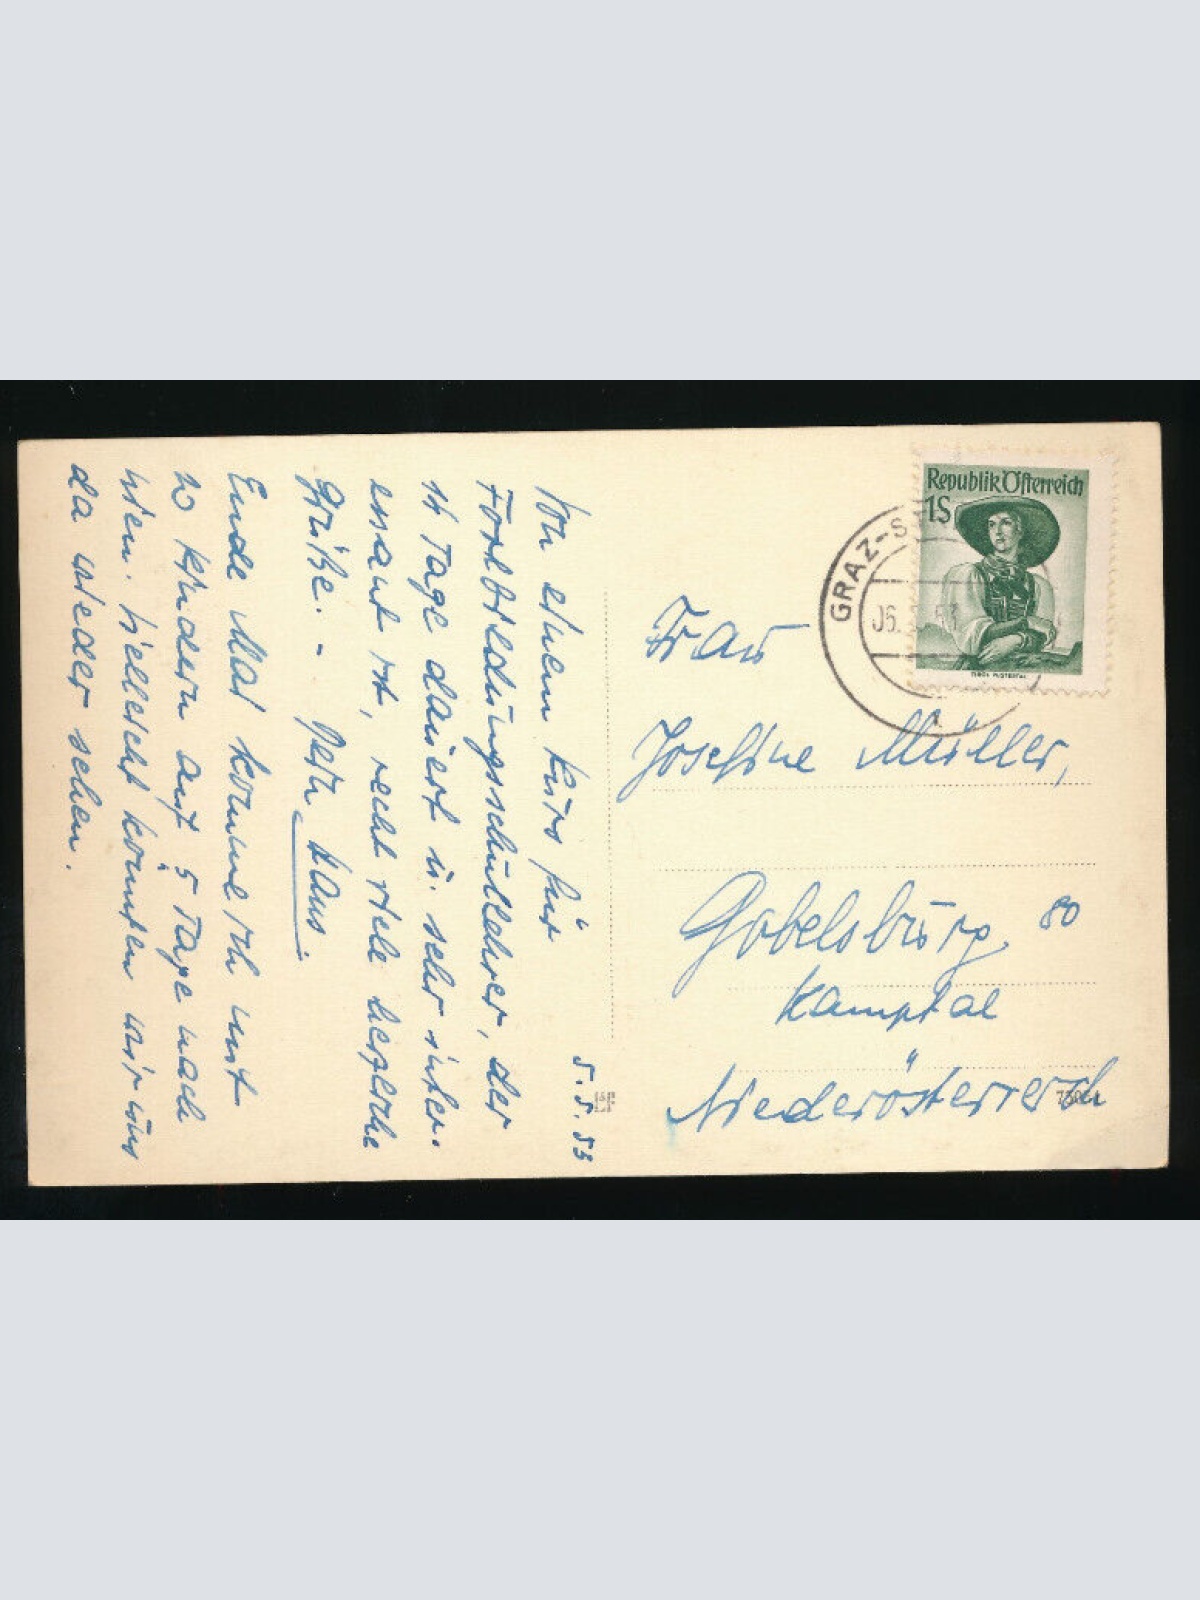 5.5.53
Von einem Kurs für
Fortbildungsschullehrer, der
14 Tage dauert u. sehr inter-
essant ist, recht viele herzliche
Grüße. - Dein Hans.
Ende Mai komme ich mit
20 Kindern auf 5 Tage nach
Wien. Vielleicht könnten wir uns
da wieder sehen.
Republik Österreich
1S
TIROL PUSTERTAL
GRAZ-
06. 53
Frau
Josefine Müller,
Gobelsburg 80
Kamptal
Niederösterreich